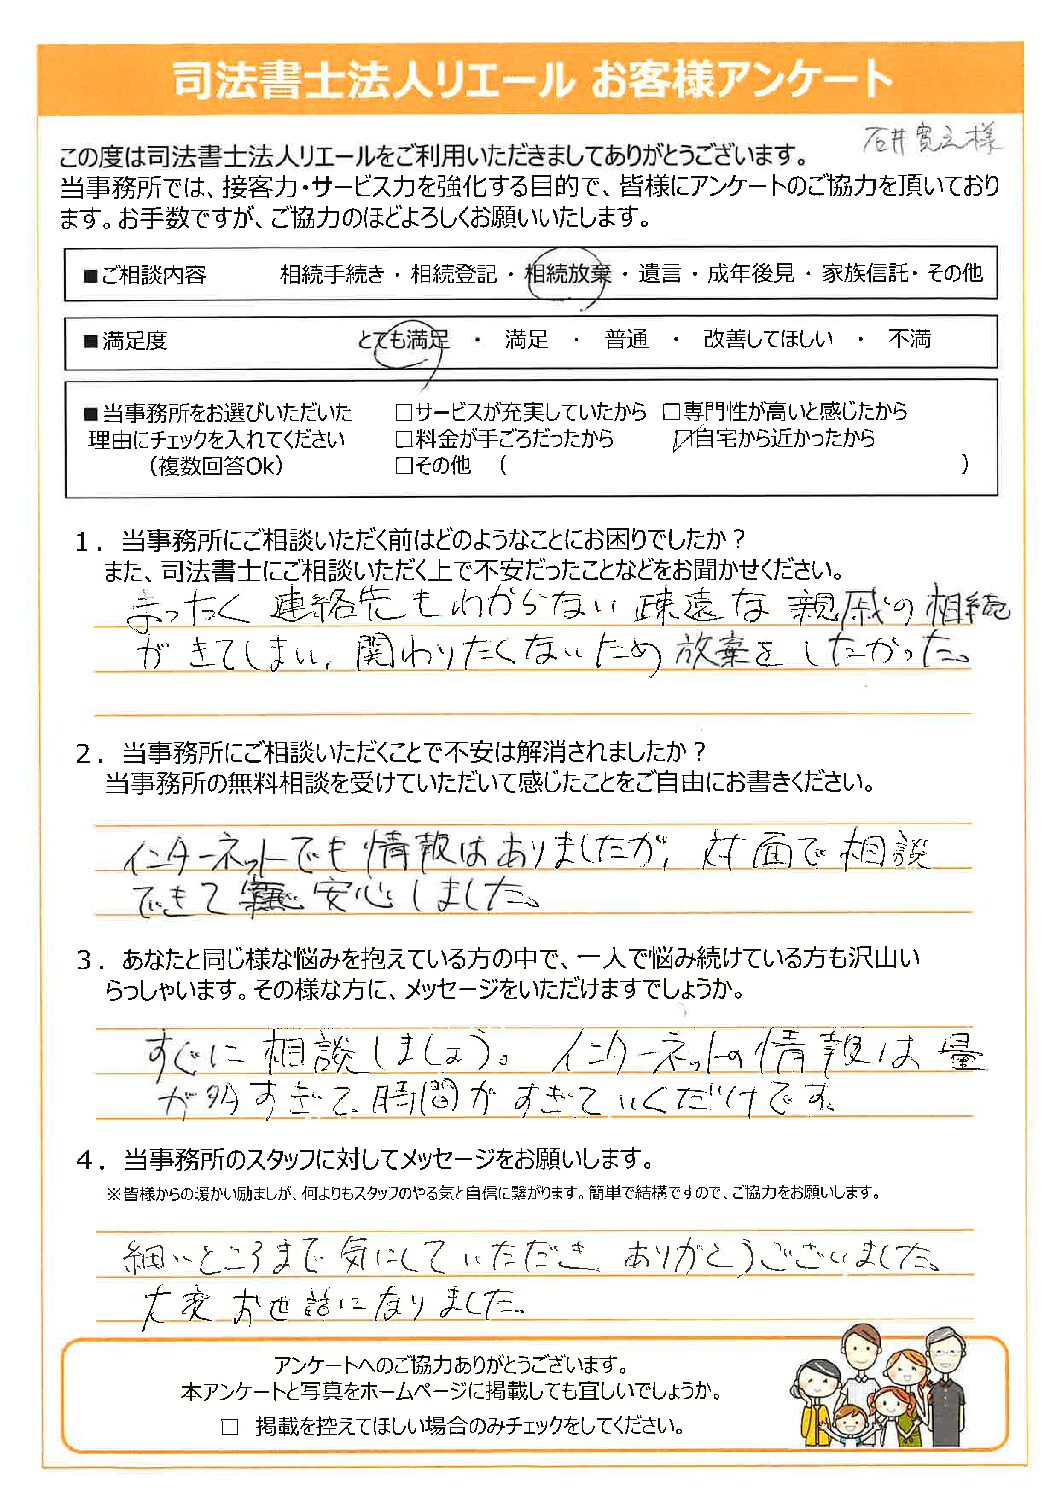 司法書士法人リエール お客様アンケート
石井寛之様
この度は司法書士法人リエールをご利用いただきましてありがとうございます。
当事務所では、接客力・サービス力を強化する目的で、皆様にアンケートのご協力を頂いており
ます。お手数ですが、ご協力のほどよろしくお願いいたします。
■ご相談内容 相続手続き・相続登記・相続放棄・遺言・成年後見・家族信託・その他
■満足度 とても満足 ・ 満足 ・ 普通 ・ 改善してほしい ・ 不満
■当事務所をお選びいただいた □サービスが充実していたから □専門性が高いと感じたから
理由にチェックを入れてください □料金が手ごろだったから ☑自宅から近かったから
（複数回答Ok） □その他 （ ）
１．当事務所にご相談いただく前はどのようなことにお困りでしたか？
また、司法書士にご相談いただく上で不安だったことなどをお聞かせください。
まったく連絡先もわからない疎遠な親戚の相続
がきてしまい、関わりたくないため放棄をしたかった。
２．当事務所にご相談いただくことで不安は解消されましたか？
当事務所の無料相談を受けていただいて感じたことをご自由にお書きください。
インターネットでも情報はありましたが、対面で相談
できて安心しました。
３．あなたと同じ様な悩みを抱えている方の中で、一人で悩み続けている方も沢山い
らっしゃいます。その様な方に、メッセージをいただけますでしょうか。
すぐに相談しましょう。インターネットの情報は量
が多すぎて、時間がすぎていくだけです。
４．当事務所のスタッフに対してメッセージをお願いします。
※皆様からの暖かい励ましが、何よりもスタッフのやる気と自信に繋がります。簡単で結構ですので、ご協力をお願いします。
細いところまで気にしていただき、ありがとうございました。
大変お世話になりました。
アンケートへのご協力ありがとうございます。
本アンケートと写真をホームページに掲載しても宜しいでしょうか。
□ 掲載を控えてほしい場合のみチェックをしてください。